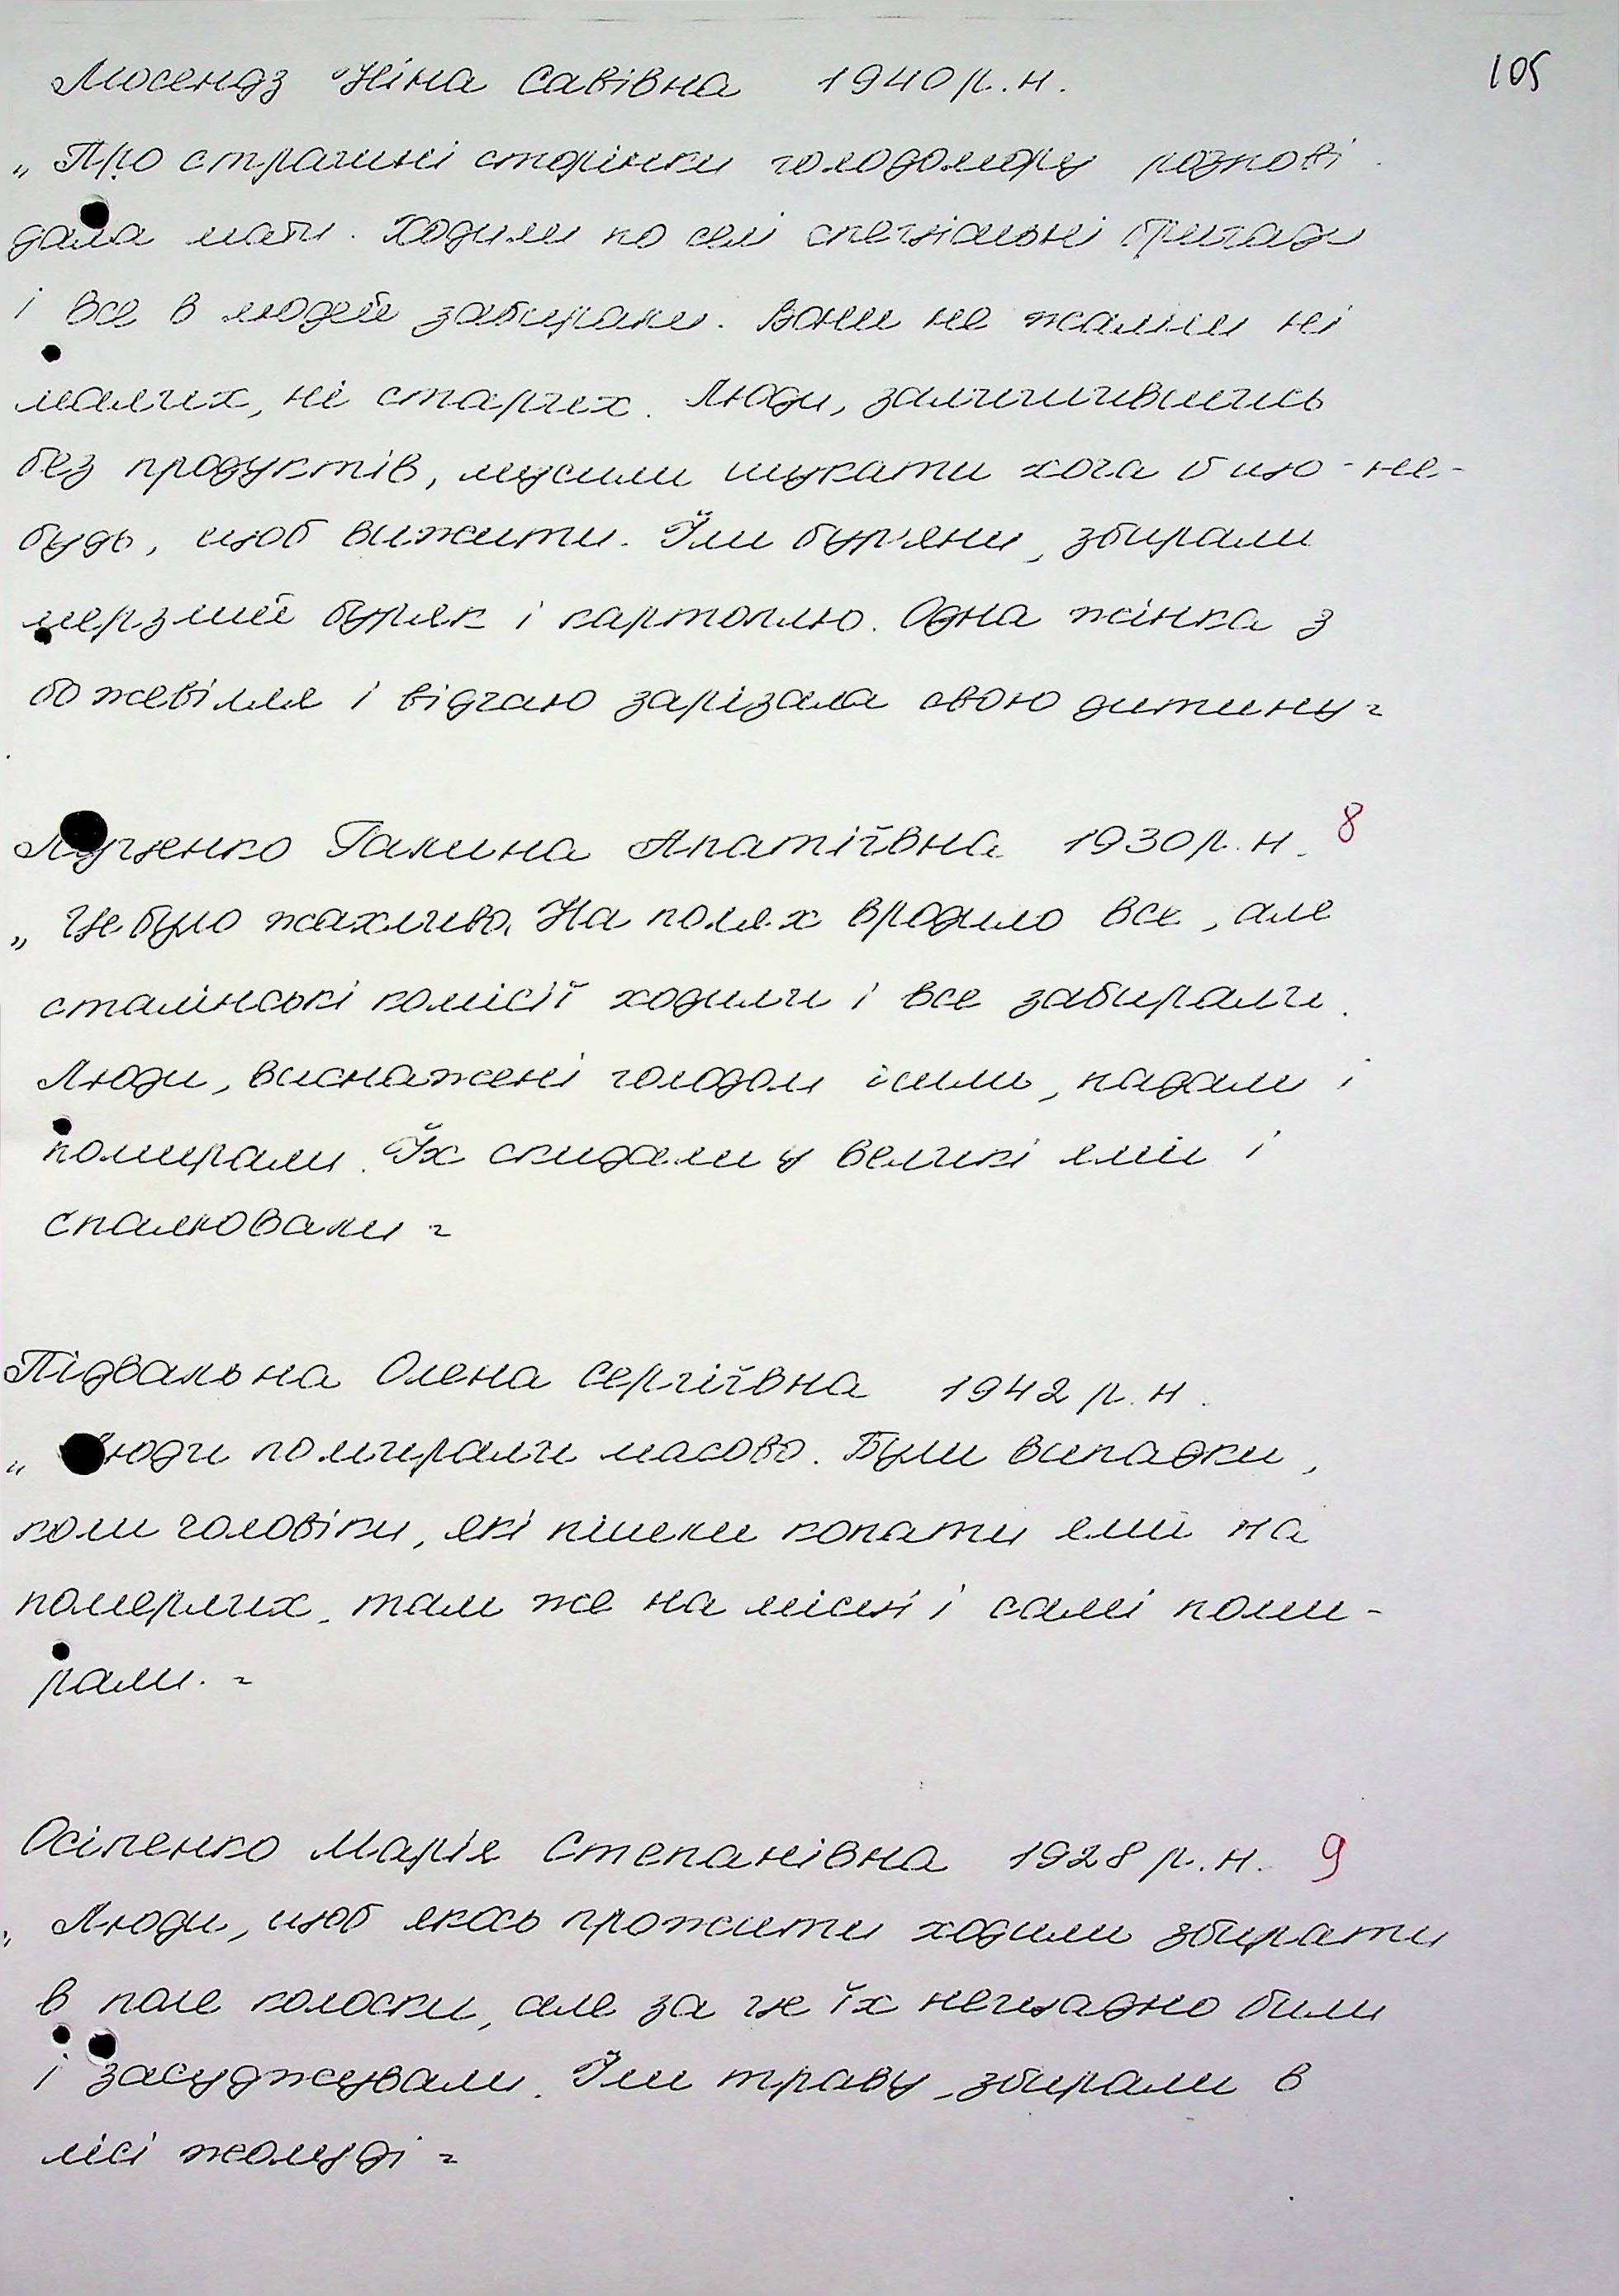 Мосендз Ніна Савівна 1940 р.н.
105
„Про страшні сторінки голодомору розпові
дала мати. Ходили по селі спеціальні бригади
і все в людей забирали. Вони не жаліли ні
малих, ні старих. Люди, залишившись
без продуктів, мусили шукати хоча б що-не-
будь, щоб вижити. Їли бур'яни, збирали
мерзлий буряк і картоплю. Одна жінка з
божевілля і відчаю зарізала свою дитину"
Луценко Галина Апатіївна 1930 р.н. 8
„Це було жахливо. На полях вродило все, але
сталінські комісії ходили і все забирали.
Люди, виснажені голодом ішли, падали і
помирали. Їх скидали у великі ями і
спалювали"
Підвальна Олена Сергіївна 1942 р.н.
„Люди помирали масово. Були випадки,
коли чоловіки, які пішли копати ями на
померлих, там же на місці і самі поми-
рали."
Осіпенко Марія Степанівна 1928 р.н. 9
„Люди, щоб якось прожити ходили збирати
в поле колоски, але за це їх нещадно били
і засуджували. Їли траву, збирали в
лісі жолуді"